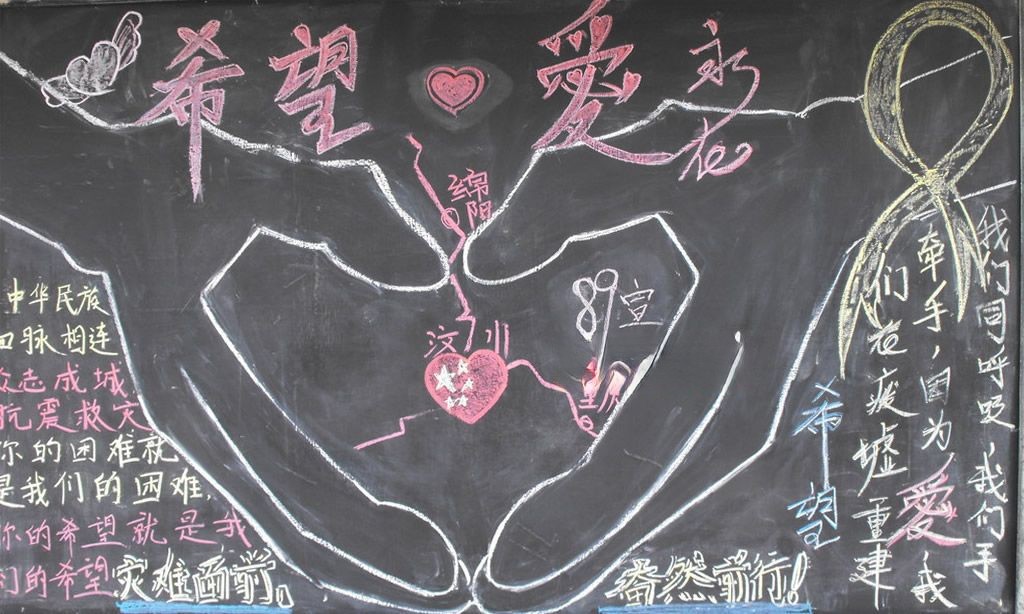 希望 愛永在
绵阳
89宣
汶川
重庆
中华民族
血脉相连
众志成城
抗震救灾
你的困难就
是我们的困难,
你的希望就是我
们的希望
灾难面前。
奋然前行!
我们同呼吸,我们手
牵手,因为愛,我
们在废墟重建
希望